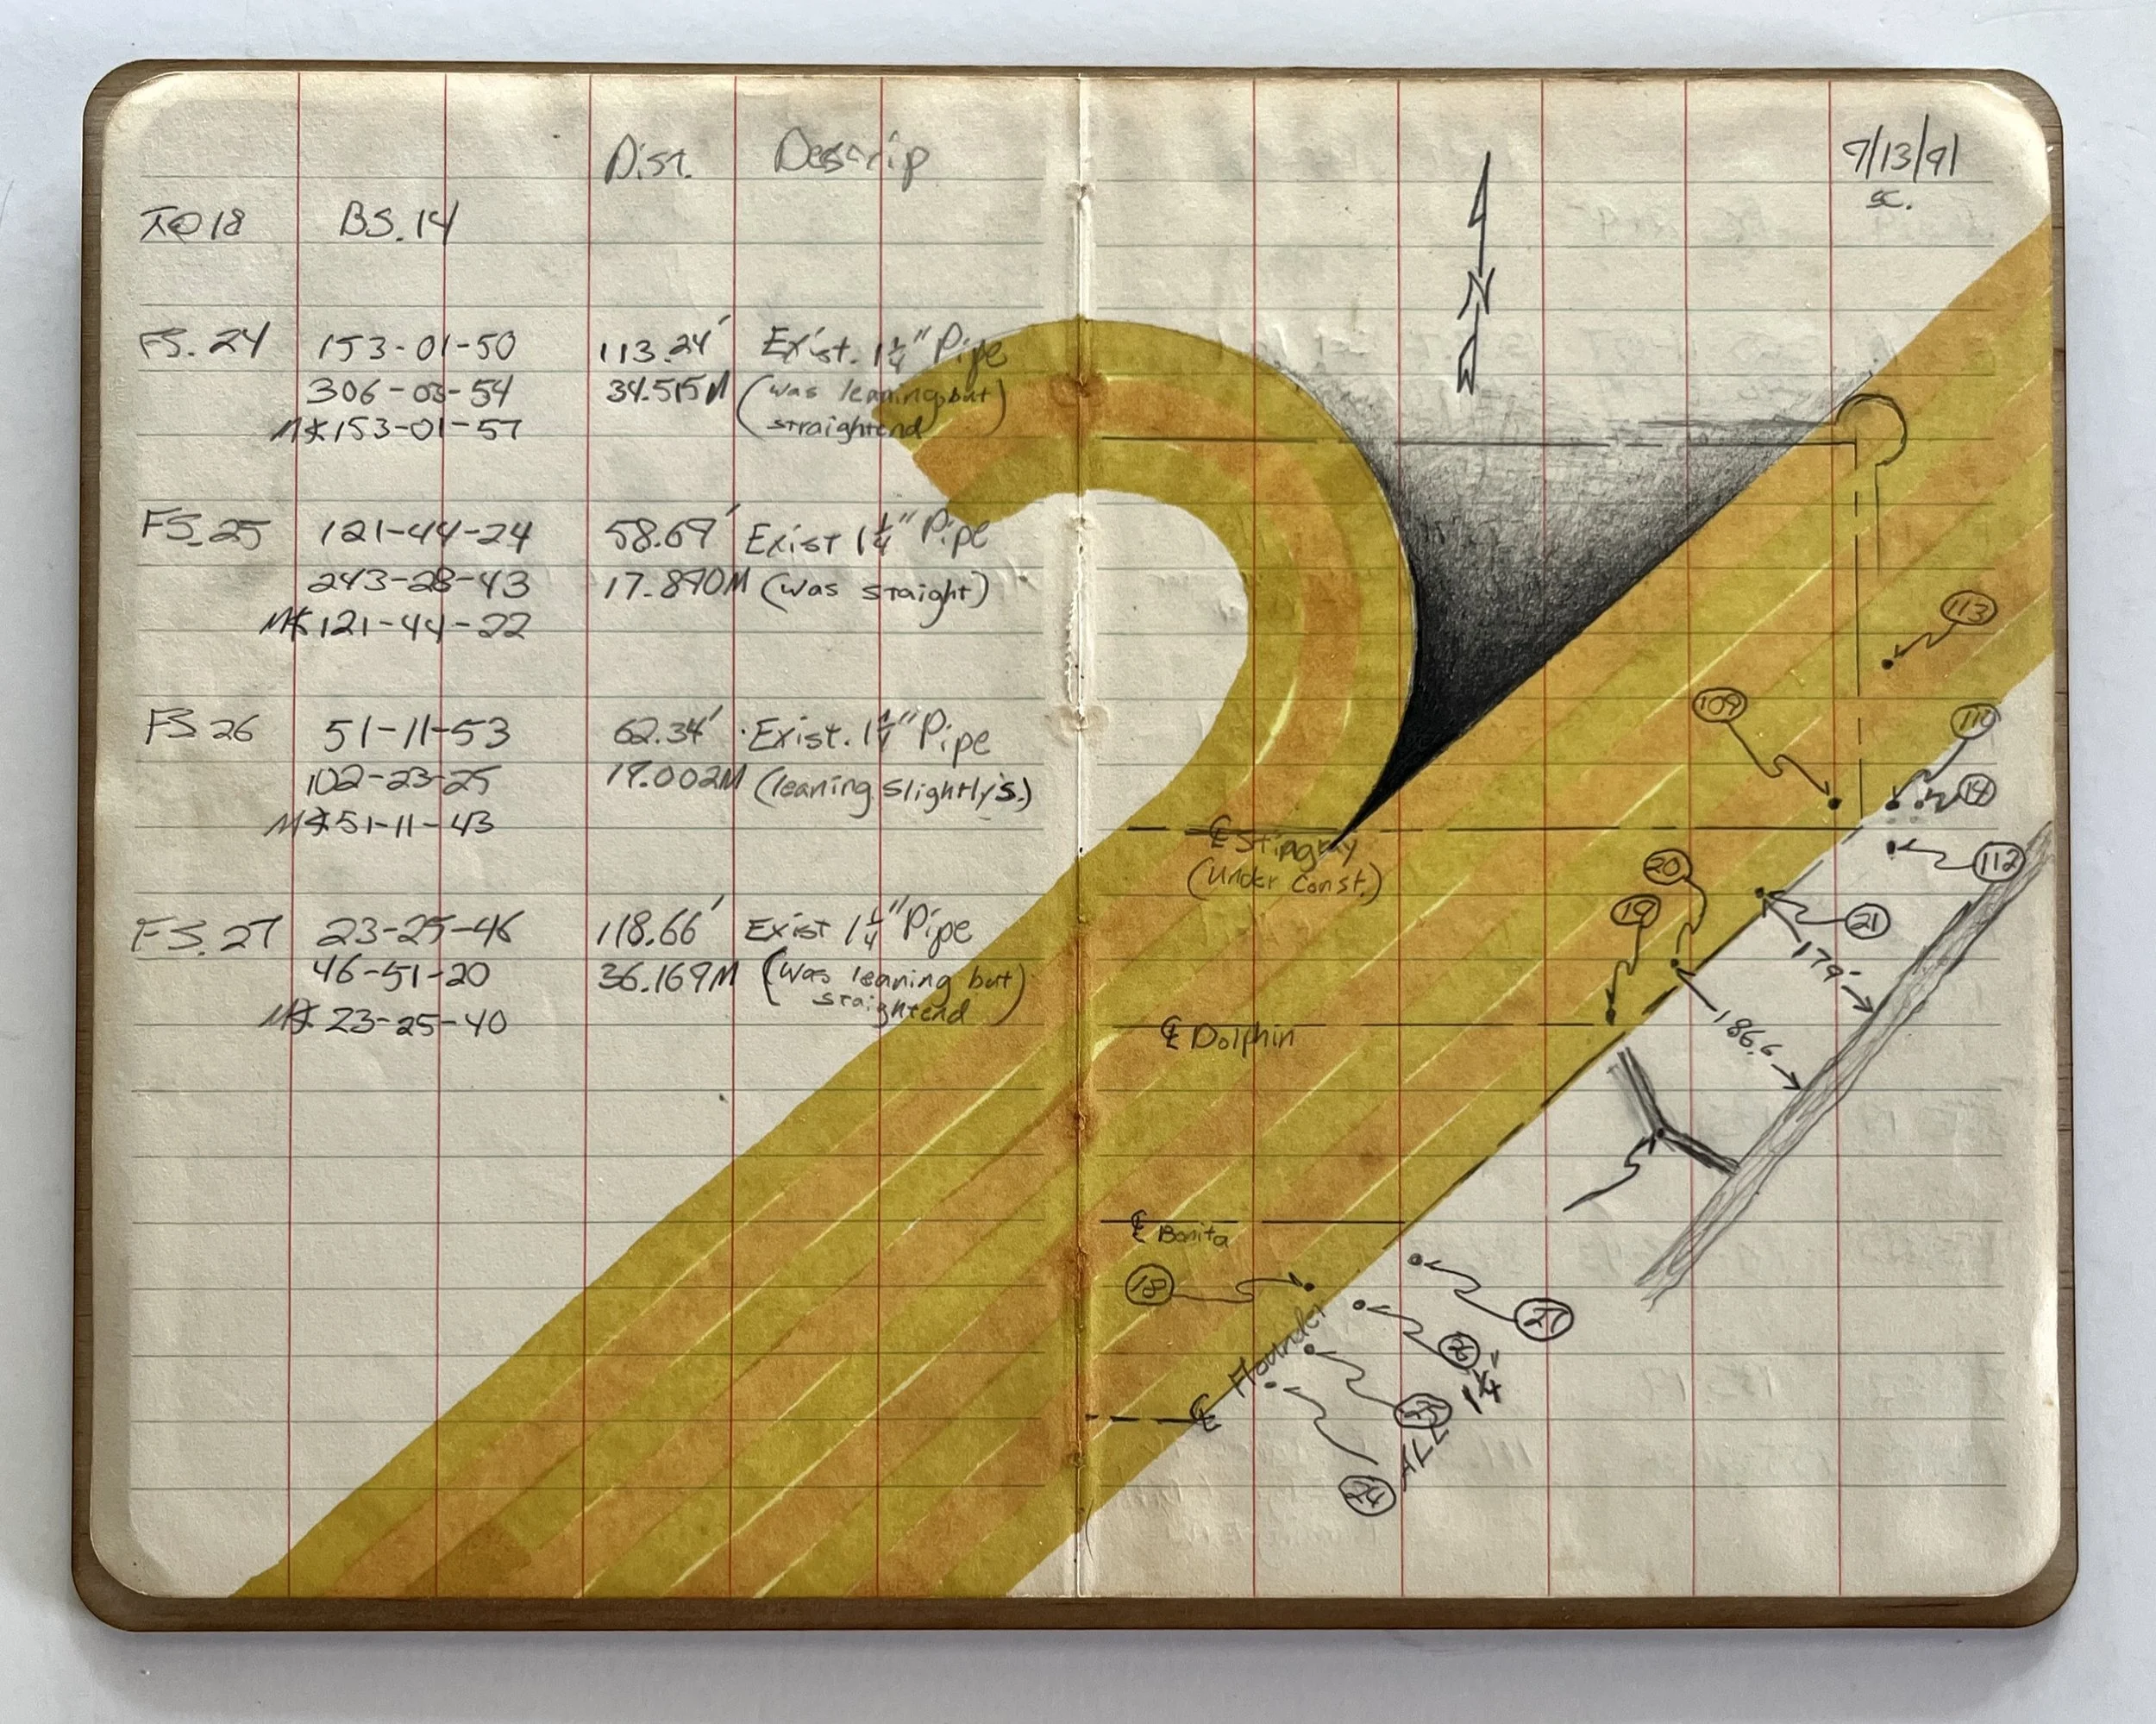 Dist. Descrip
⊼@18 BS.14
FS.24 153-01-50 113.24' Exist. 1¼" Pipe
306-03-54 34.515M (was leaning but
M∡153-01-57 straightend)
FS.25 121-44-24 58.69' Exist 1¼" Pipe
243-28-43 17.890M (was staight)
M∡121-44-22
FS 26 51-11-53 62.34' Exist. 1¼" Pipe
102-23-25 19.002M (leaning slightly s.)
M∡51-11-43
FS.27 23-25-46 118.66' Exist 1¼" Pipe
46-51-20 36.169M (was leaning but
M∡ 23-25-40 staightend)
9/13/91
SC.
N
113
109
110
14
℄ Stingray
(Under Const.)
112
20
19
21
179'
℄ Dolphin
186.6
℄ Bonita
18
27
℄ Flounder
26
1¼"
25
ALL
24